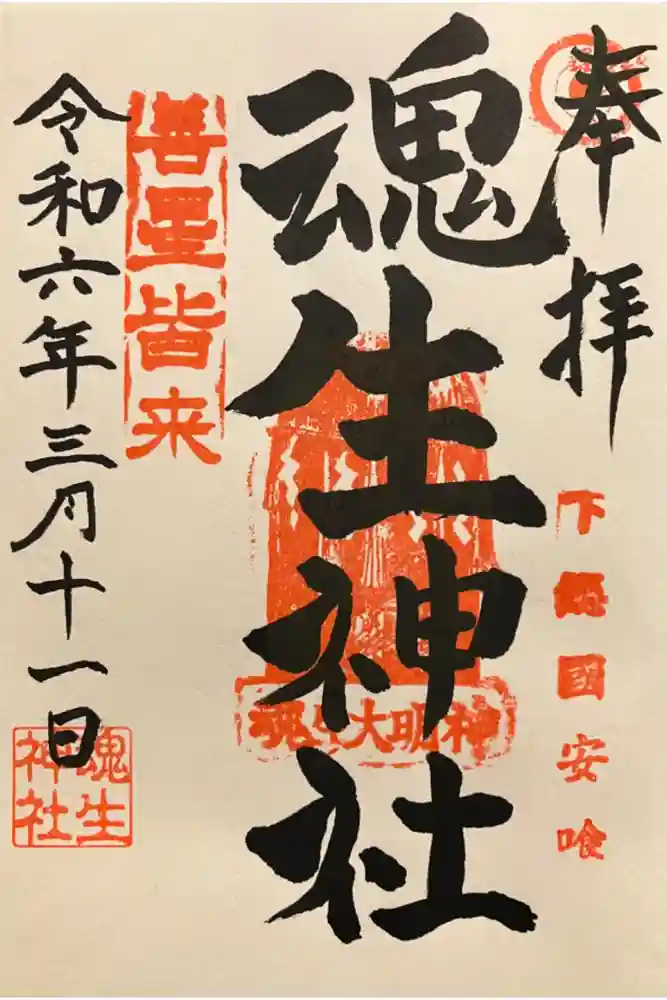 奉拝
下総國安喰
魂生神社
魂生大明神
善星皆来
令和六年三月十一日
魂生
神社